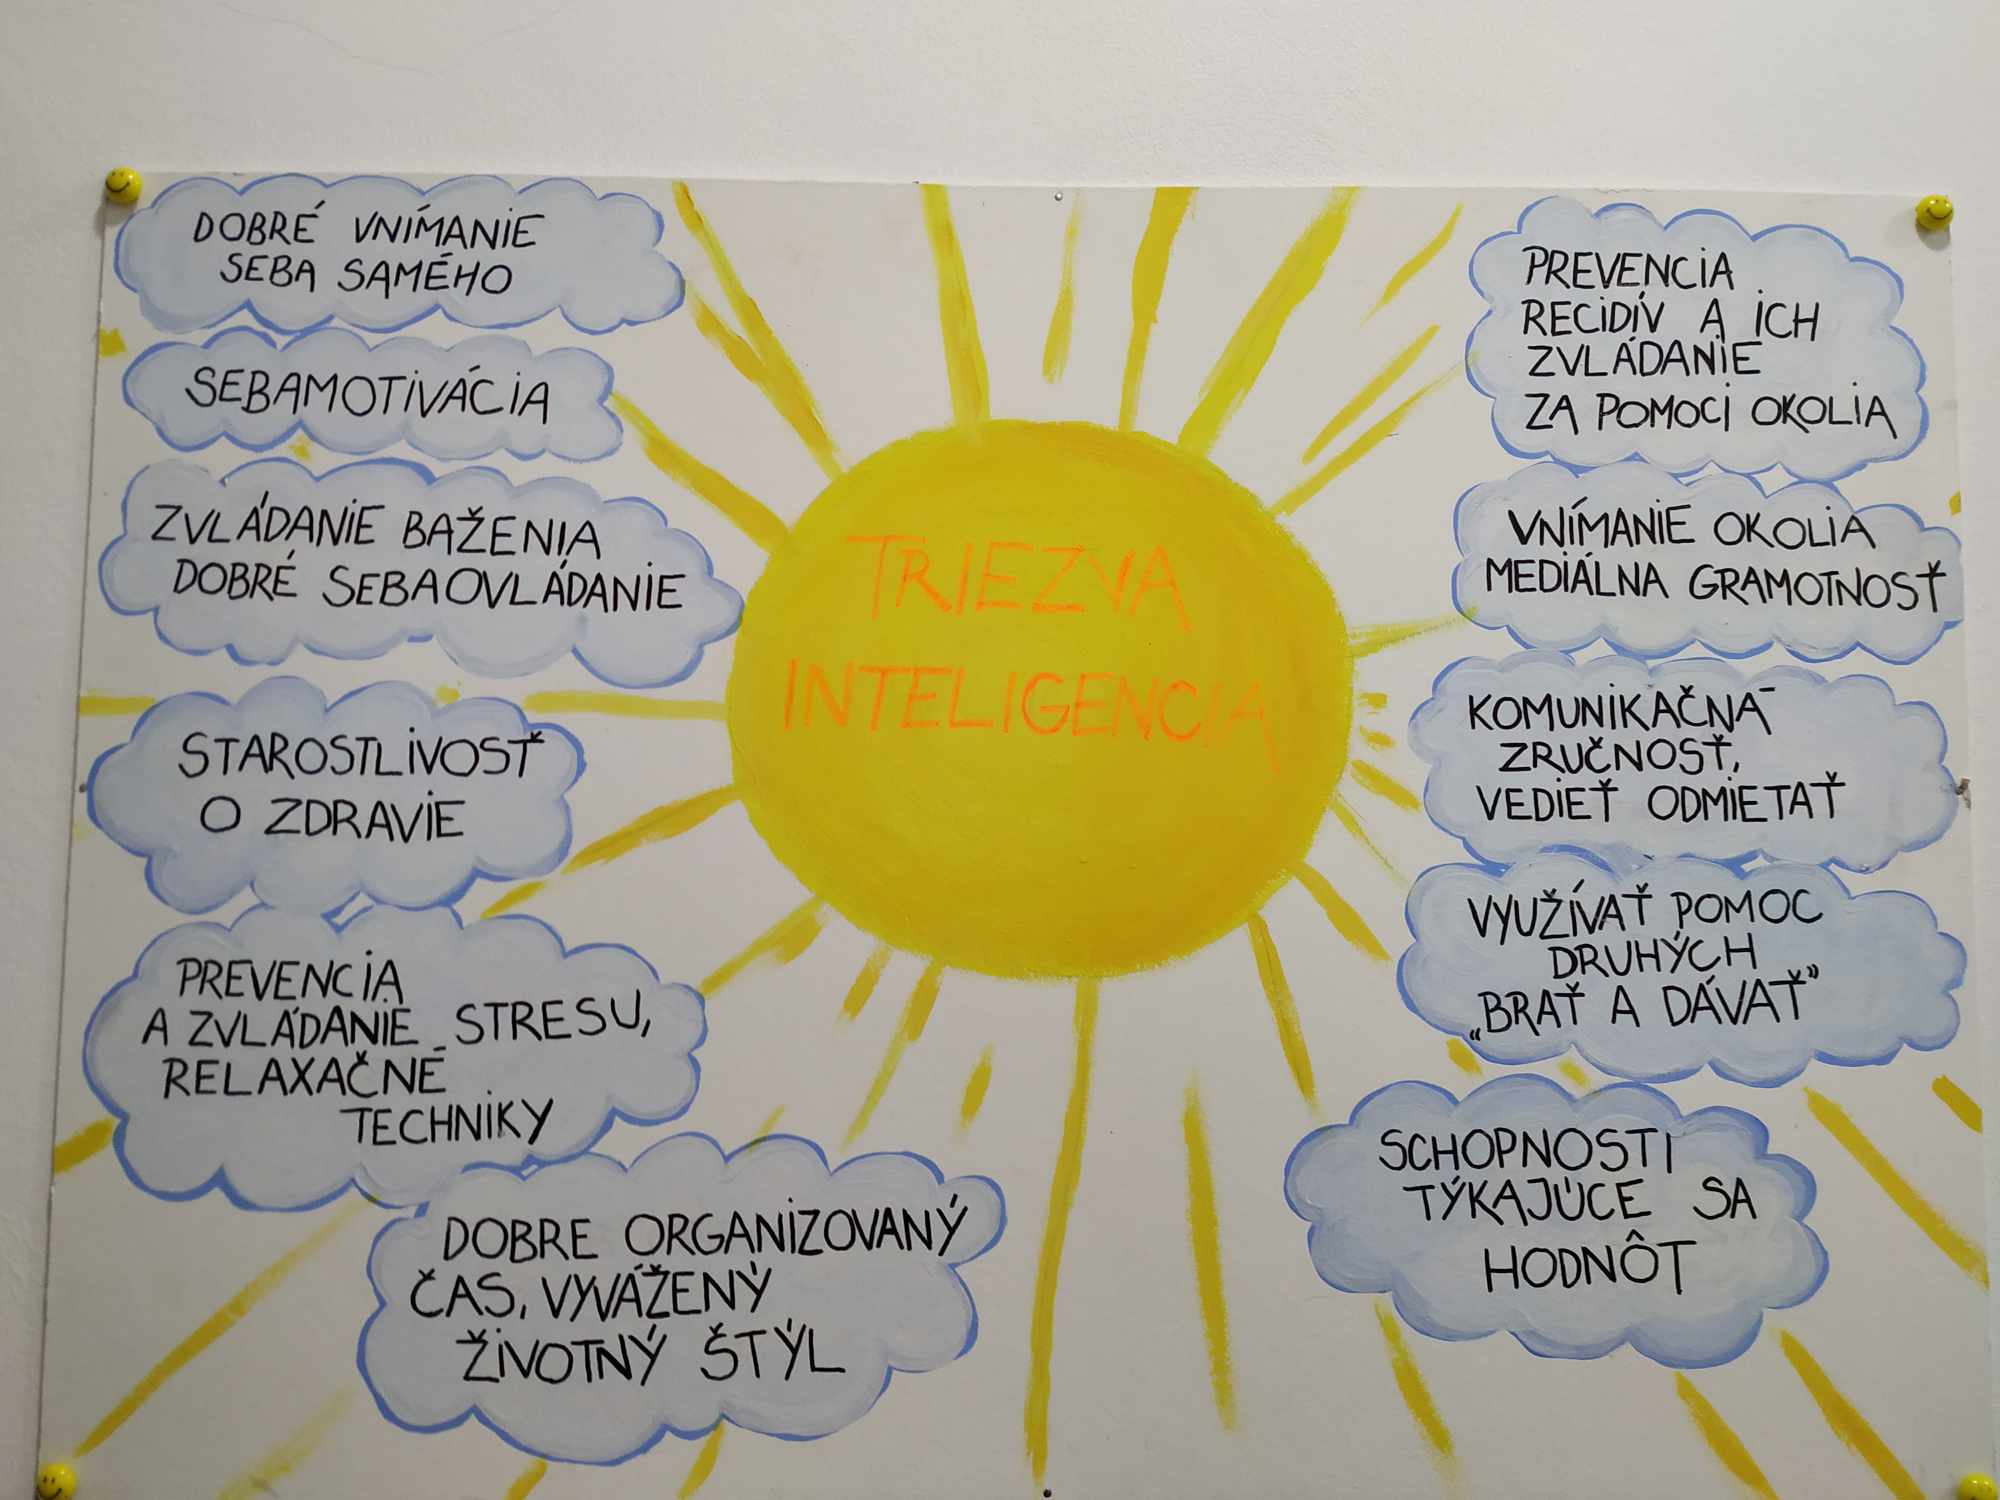 DOBRÉ VNÍMANIE
SEBA SAMÉHO
SEBAMOTIVÁCIA
ZVLÁDANIE BAŽENIA
DOBRÉ SEBAOVLÁDANIE
STAROSTLIVOSŤ
O ZDRAVIE
PREVENCIA
A ZVLÁDANIE STRESU,
RELAXAČNÉ
TECHNIKY
DOBRE ORGANIZOVANÝ
ČAS, VYVÁŽENÝ
ŽIVOTNÝ ŠTÝL
TRIEZVA
INTELIGENCIA
PREVENCIA
RECIDÍV A ICH
ZVLÁDANIE
ZA POMOCI OKOLIA
VNÍMANIE OKOLIA
MEDIÁLNA GRAMOTNOSŤ
KOMUNIKAČNÁ
ZRUČNOSŤ,
VEDIEŤ ODMIETAŤ
VYUŽÍVAŤ POMOC
DRUHÝCH
„BRAŤ A DÁVAŤ”
SCHOPNOSTI
TÝKAJÚCE SA
HODNÔT